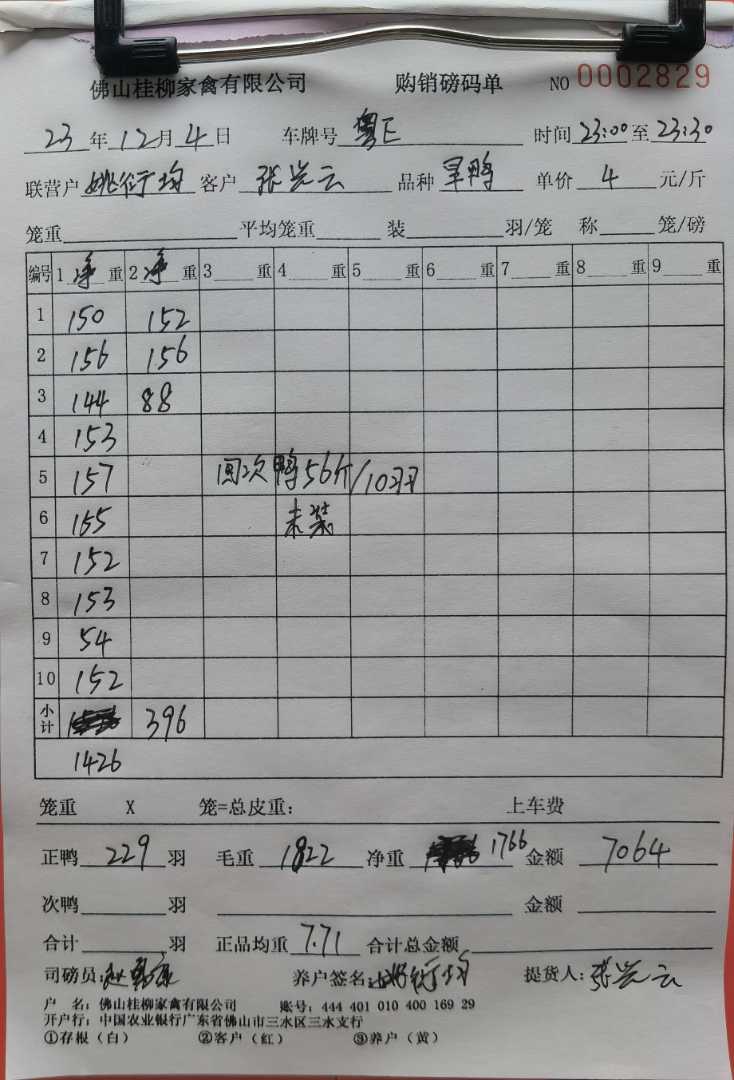 佛山桂柳家禽有限公司 购销磅码单 NO 0002829
23年12月4日 车牌号 粤E 时间 23:00 至 23:30
联营户 姚衍均 客户 张光云 品种 旱鸭 单价 4 元/斤
笼重 平均笼重 装 羽/笼 称 笼/磅
编号 1 净 重 2 净 重 3 重 4 重 5 重 6 重 7 重 8 重 9 重
1 150 152
2 156 156
3 144 88
4 153
5 157 回次鸭56斤/10羽
6 155 未装
7 152
8 153
9 54
10 152
小计 396
1426
笼重 X 笼=总皮重: 上车费
正鸭 229 羽 毛重 1822 净重 1766 金额 7064
次鸭 羽 金额
合计 羽 正品均重 7.71 合计总金额
司磅员: 养户签名: 姚衍均 提货人: 张光云
户 名: 佛山桂柳家禽有限公司 账号: 444 401 010 400 169 29
开户行: 中国农业银行广东省佛山市三水区三水支行
①存根(白) ②客户(红) ③养户(黄)